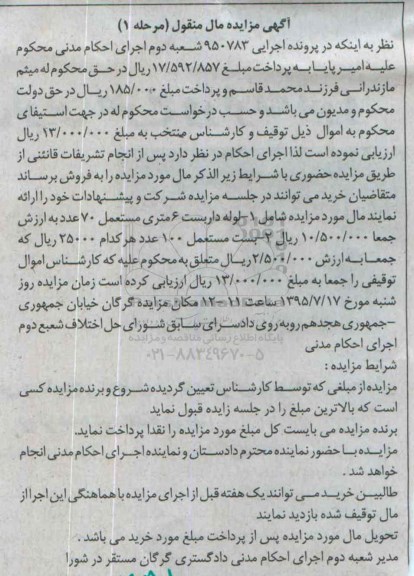 آگهی مزایده مال منقول (مرحله ۱)
نظر به اینکه در پرونده اجرایی ۹۵۰۷۸۳ شعبه دوم اجرای احکام مدنی محکوم
علیه امیر پایا به پرداخت مبلغ ۱۷/۵۹۲/۸۵۷ ریال در حق محکوم له میثم
مازندرانی فرزند محمد قاسم و پرداخت مبلغ ۱۸۵/۰۰۰ ریال در حق دولت
محکوم و مدیون می باشد و حسب درخواست محکوم له در جهت استیفای
محکوم به اموال ذیل توقیف و کارشناس منتخب به مبلغ ۱۳/۰۰۰/۰۰۰ ریال
ارزیابی نموده است لذا اجرای احکام در نظر دارد پس از انجام تشریفات قانئنی از
طریق مزایده حضوری با شرایط زیر الذکر مال مورد مزایده را به فروش برساند
متقاضیان خرید می توانند در جلسه مزایده شرکت و پیشنهادات خود را ارائه
نمایند مال مورد مزایده شامل ۱- لوله داربست ۶ متری مستعمل ۷۰ عدد به ارزش
جمعا ۱۰/۵۰۰/۰۰۰ ریال ۲- بست مستعمل ۱۰۰ عدد هر کدام ۲۵۰۰۰ ریال که
جمعا به ارزش ۲/۵۰۰/۰۰۰ ریال متعلق به محکوم علیه که کارشناس اموال
توقیفی را جمعا به مبلغ ۱۳/۰۰۰/۰۰۰ ریال ارزیابی کرده است زمان مزایده روز
شنبه مورخ ۱۳۹۵/۷/۱۷ ساعت ۱۱-۱۲ مکان مزایده گرگان خیابان جمهوری
-جمهوری هجدهم روبه روی دادسرای سابق شورای حل اختلاف شعبع دوم
اجرای احکام مدنی
پایگاه اطلاع رسانی مناقصه و مزایده
۰۲۱-۸۸۳۴۹۶۷۰-۵
شرایط مزایده :
مزایده از مبلغی که توسط کارشناس تعیین گردیده شروع و برنده مزایده کسی
است که بالاترین مبلغ را در جلسه زایده قبول نماید
برنده مزایده می بایست کل مبلغ مورد مزایده را نقدا پرداخت نماید.
مزایده با حضور نماینده محترم دادستان و نماینده اجرای احکام مدنی انجام
خواهد شد .
طالبین خرید می توانند یک هفته قبل از اجرای مزایده با هماهنگی این اجرا از
مال توقیف شده بازدید نمایند
تحویل مال مورد مزایده پس از پرداخت مبلغ مورد خرید می باشد .
مدیر شعبه دوم اجرای احکام مدنی دادگستری گرگان مستقر در شورا